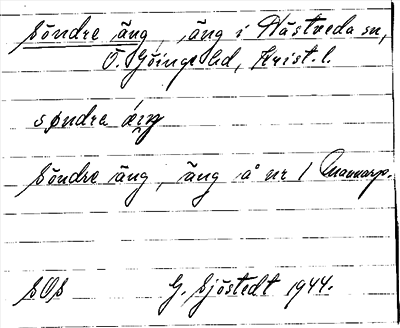 Söndre äng, äng i Nästveda sn,
Ö. Göinge hd, Krist. l.
söndre äng
Söndre äng, äng å nr 1 Quarnarp.
SOS G. Sjöstedt 1944.